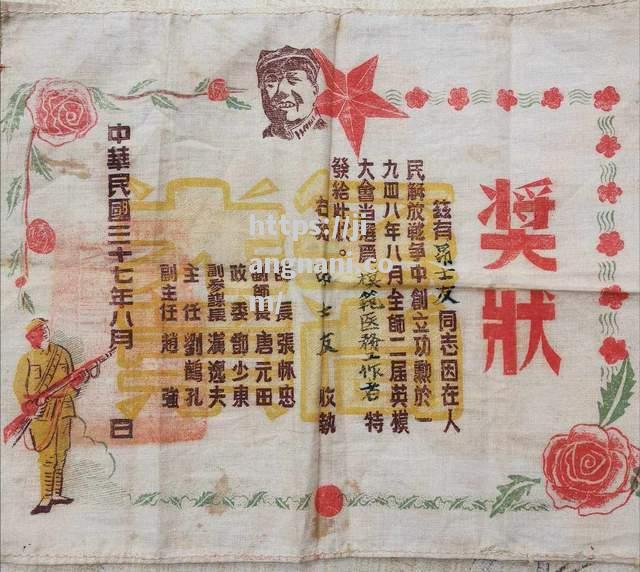 奨狀
茲有昴士友同志因在人
民解放戰爭中創立功勳於一
九四八年八月全師二届英模
大會当選爲模範医務工作者特
發給此狀。
士友 收執
師長 張怀忠
副師長 唐元田
政委 鄧少東
副参謀長 滿逸夫
主任 劉鶴孔
副主任 趙強
中華民國三十七年八月 日
https://ji
angnani.co
m/